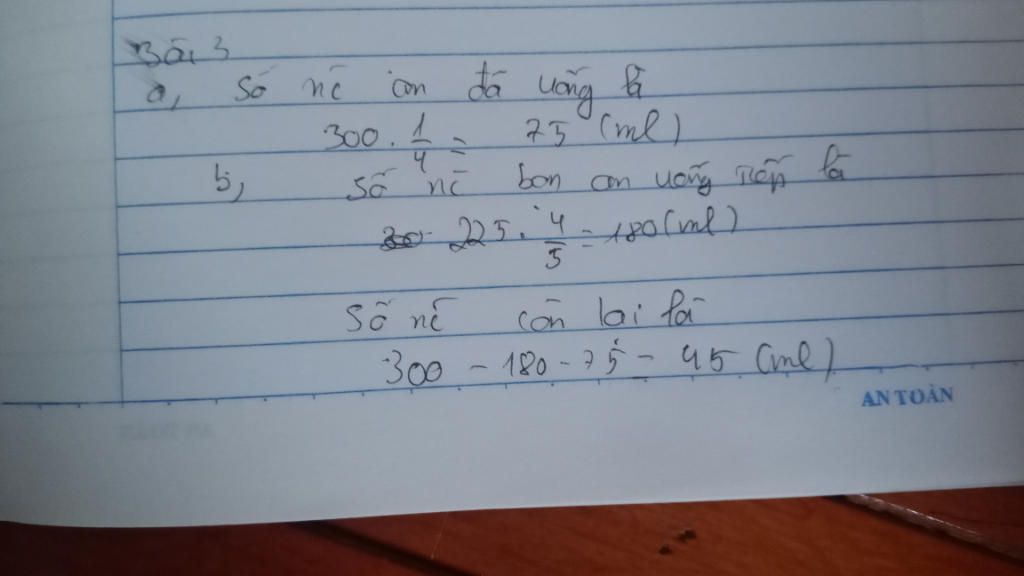 Bài 3
a, Số nc con đã uống là
300 . 1/4 = 75 (ml)
b, Số nc bạn con uống tiếp là
225 . 4/5 = 180 (ml)
Số nc còn lại là
300 - 180 - 75 = 45 (ml)
AN TOÀN